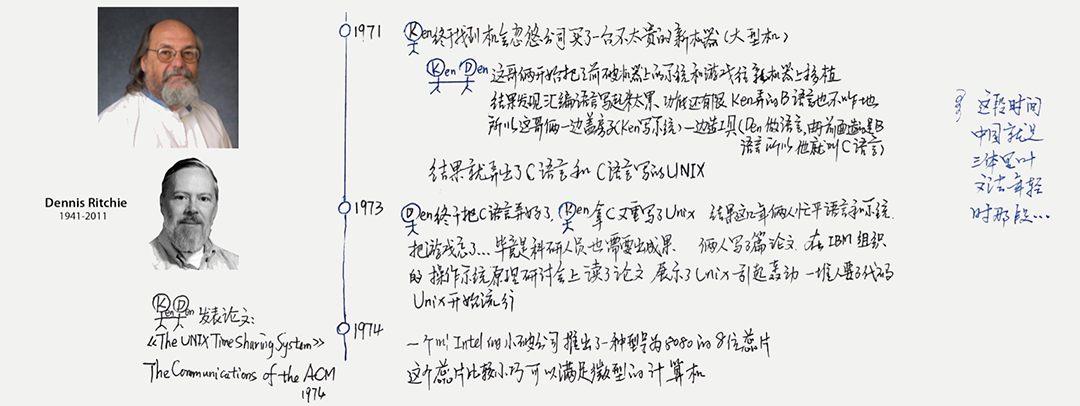 1971
Ken终于找到机会忽悠公司买了一台不太贵的新机器(大型机)
Ken Den 这哥俩开始把之前破机器上的系统和游戏往新机器上移植
结果发现汇编语言写起来太累 功能还有限 Ken弄的B语言也不咋地
所以这哥俩一边盖房子(Ken写系统)一边造工具(Den做语言,由于前面造的是B
语言所以他就叫C语言)
结果就弄出了C语言和C语言写的UNIX
这段时间
中国就是
三体里叶
文洁年轻
时那段...
Dennis Ritchie
1941-2011
1973
Den终于把C语言弄好了, Ken拿C又重写了Unix 结果这几年俩人忙乎语言和系统
把游戏忘了... 毕竟是科研人员也需要出成果 俩人写了篇论文 在IBM组织
的操作系统原理研讨会上读了论文 展示了Unix 引起轰动 一堆人要了代码
Unix开始流行
Ken Den 发表论文:
《The UNIX Time Sharing System》
The Communications of the ACM
1974
1974
一个叫Intel的小破公司推出了一种型号为8080的8位芯片
这个芯片比较小巧可以满足微型的计算机